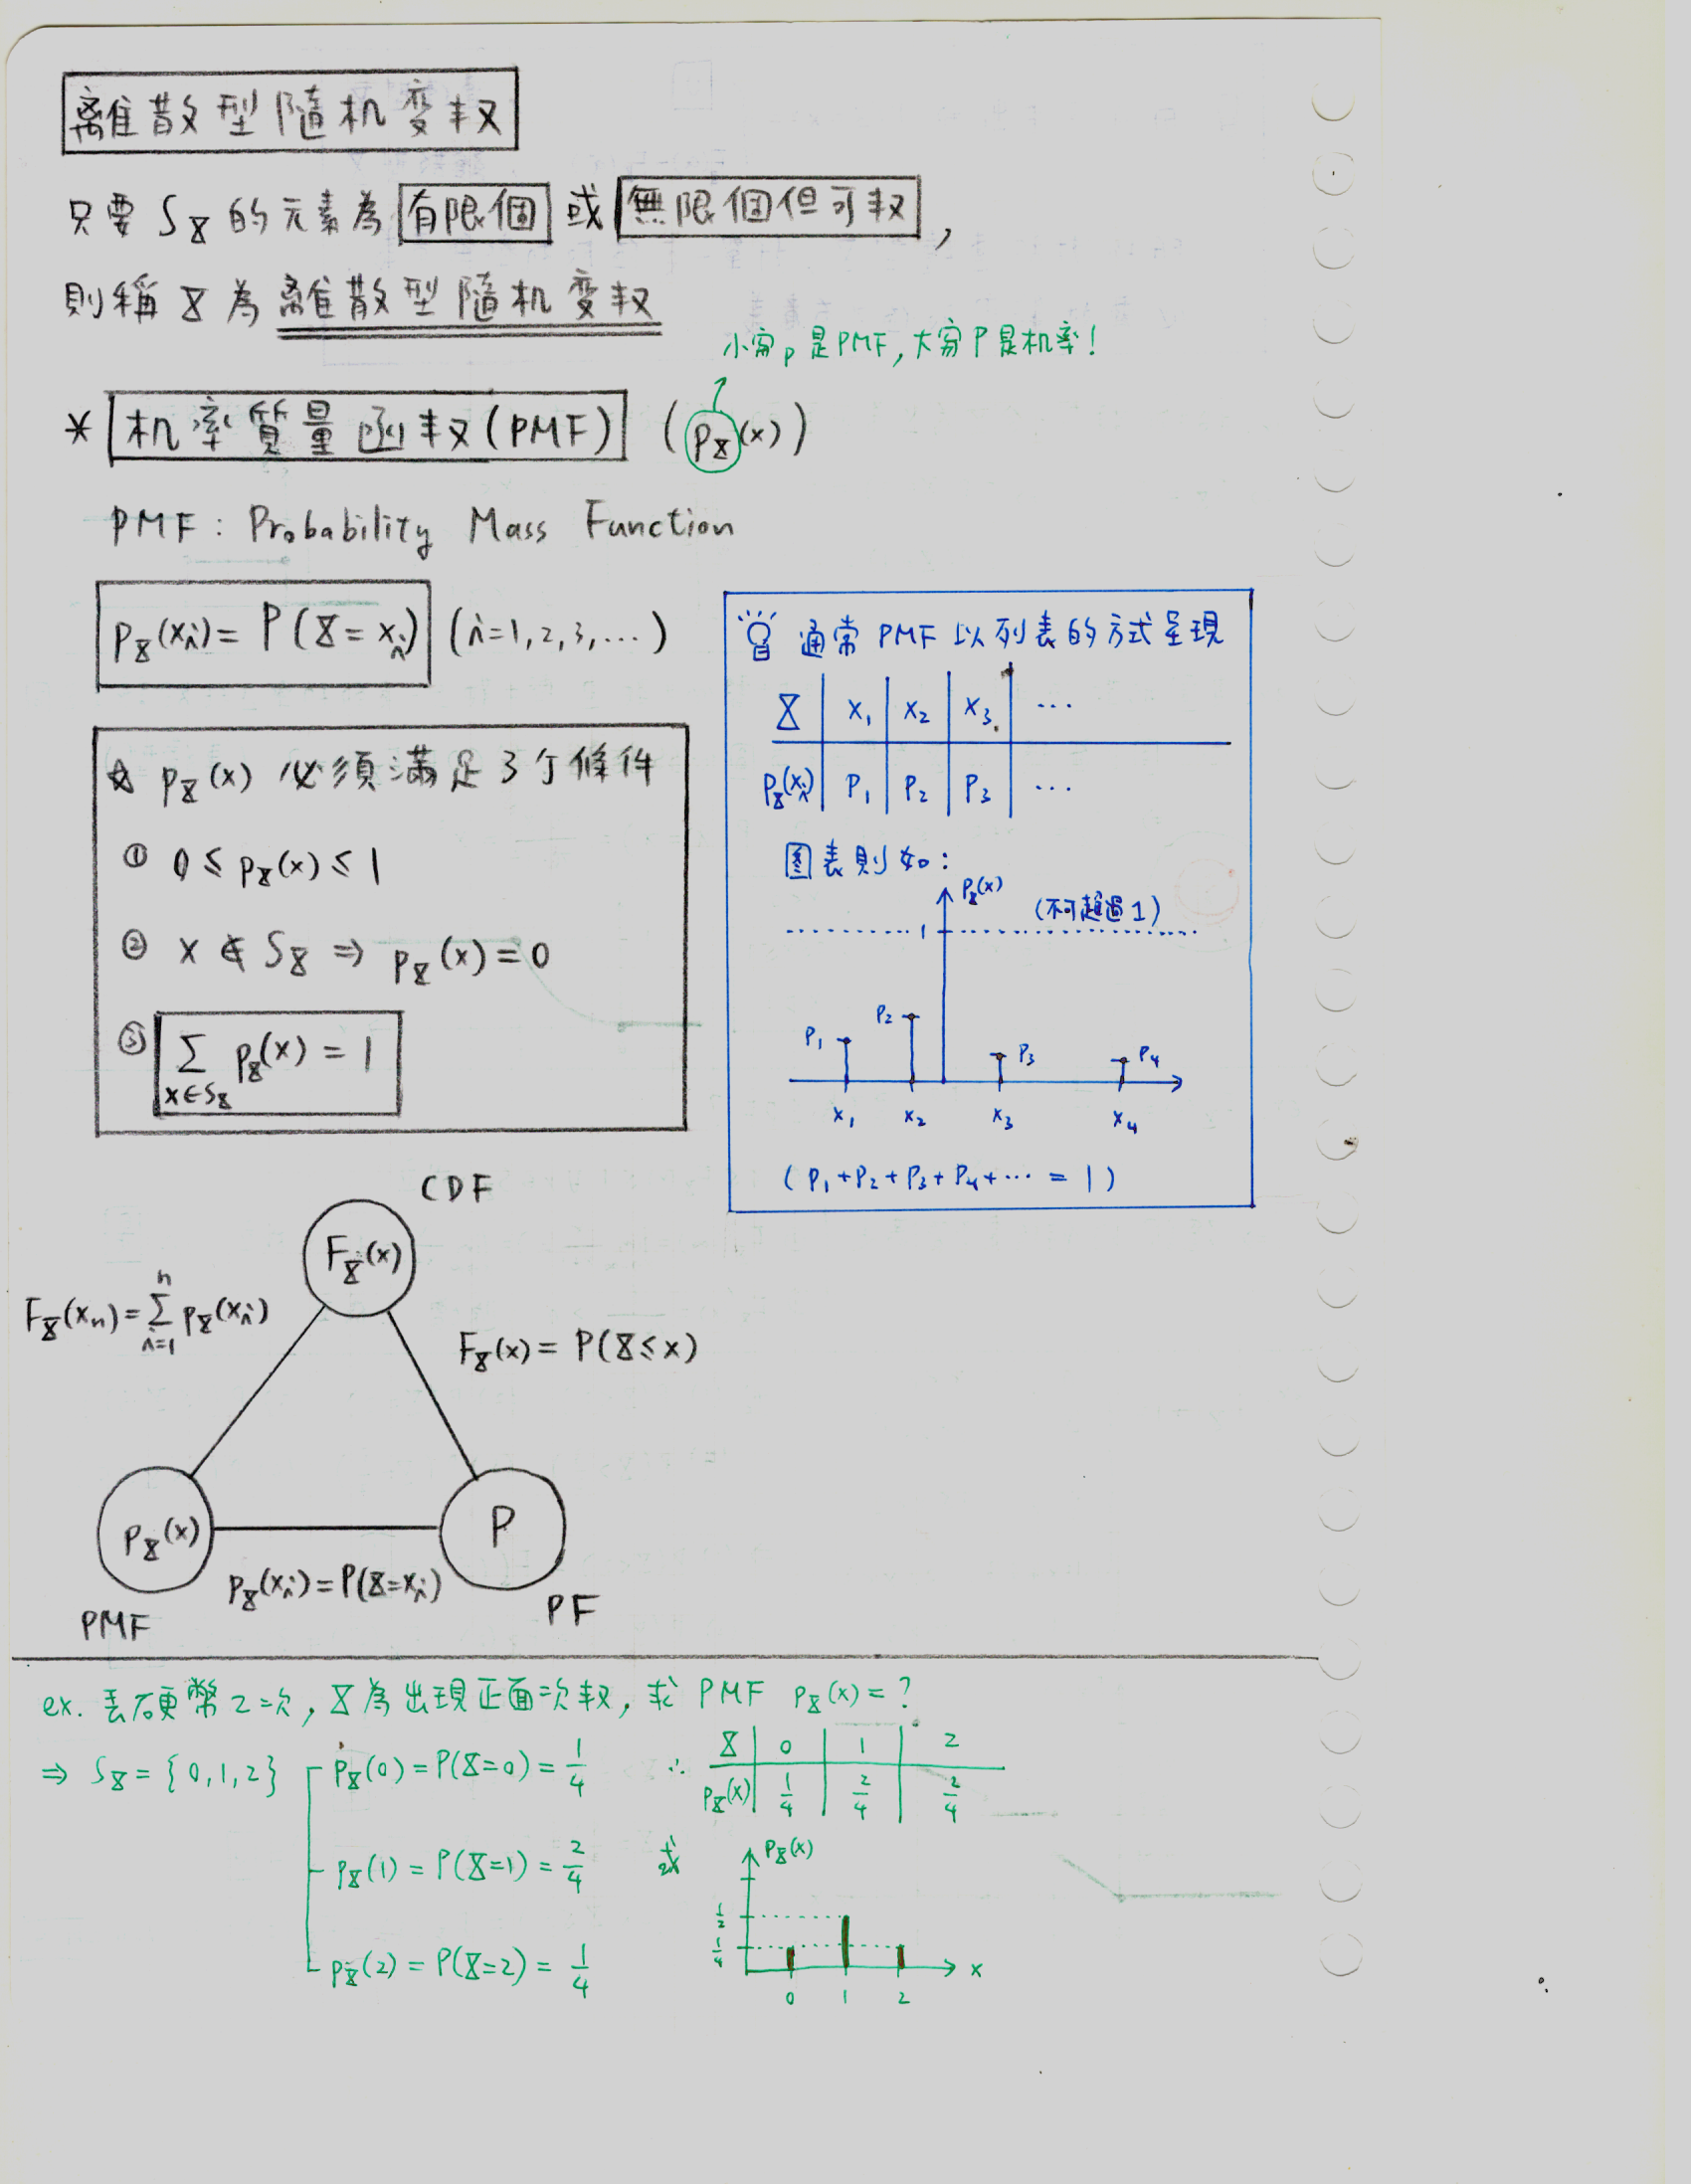 離散型隨机变数
只要 S_X 的元素為 有限個 或 無限個但可数,
則稱 X 為 離散型隨机变数
小寫p是PMF, 大寫P是机率!
* 机率質量函数(PMF) (p_X(x))
PMF : Probability Mass Function
p_X(x_i) = P(X = x_i) (i=1,2,3,...)
☆ p_X(x) 必須滿足3个條件
① 0 ≤ p_X(x) ≤ 1
② x ∉ S_X ⇒ p_X(x) = 0
③ ∑_{x∈S_X} p_X(x) = 1
通常 PMF 以列表的方式呈現
X | x_1 | x_2 | x_3 | ...
p_X(x_i) | P_1 | P_2 | P_3 | ...
图表則如:
p_X(x)
(不可超過1)
1
P_1 P_2 P_3 P_4
x_1 x_2 x_3 x_4
(P_1+P_2+P_3+P_4+... = 1)
CDF
F_X(x)
F_X(x_n) = ∑_{i=1}^{n} p_X(x_i)
F_X(x) = P(X ≤ x)
p_X(x)
P
p_X(x_i) = P(X = x_i)
PMF
PF
ex. 丟硬幣2次, X為出現正面次数, 求 PMF p_X(x) = ?
⇒ S_X = {0,1,2}
p_X(0) = P(X=0) = 1/4
p_X(1) = P(X=1) = 2/4
p_X(2) = P(X=2) = 1/4
∴ X | 0 | 1 | 2
p_X(x) | 1/4 | 2/4 | 2/4
或
p_X(x)
1/2
1/4
x
0 1 2